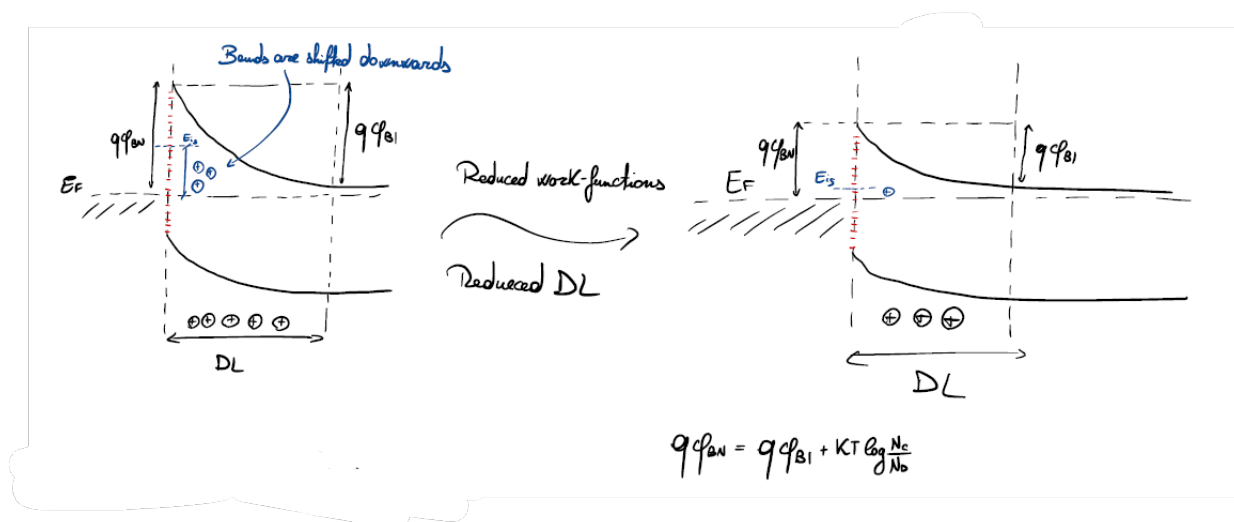 Bands are shifted downwards
qφBN
Eis
qφBI
EF
⊕ ⊕
⊕
⊕ ⊕ ⊕ ⊕ ⊕
DL
Reduced work-functions
Reduced DL
qφBN
qφBI
EF
Eis
⊕
⊕ ⊕ ⊕
DL
qφBN = qφBI + KT log NC/ND